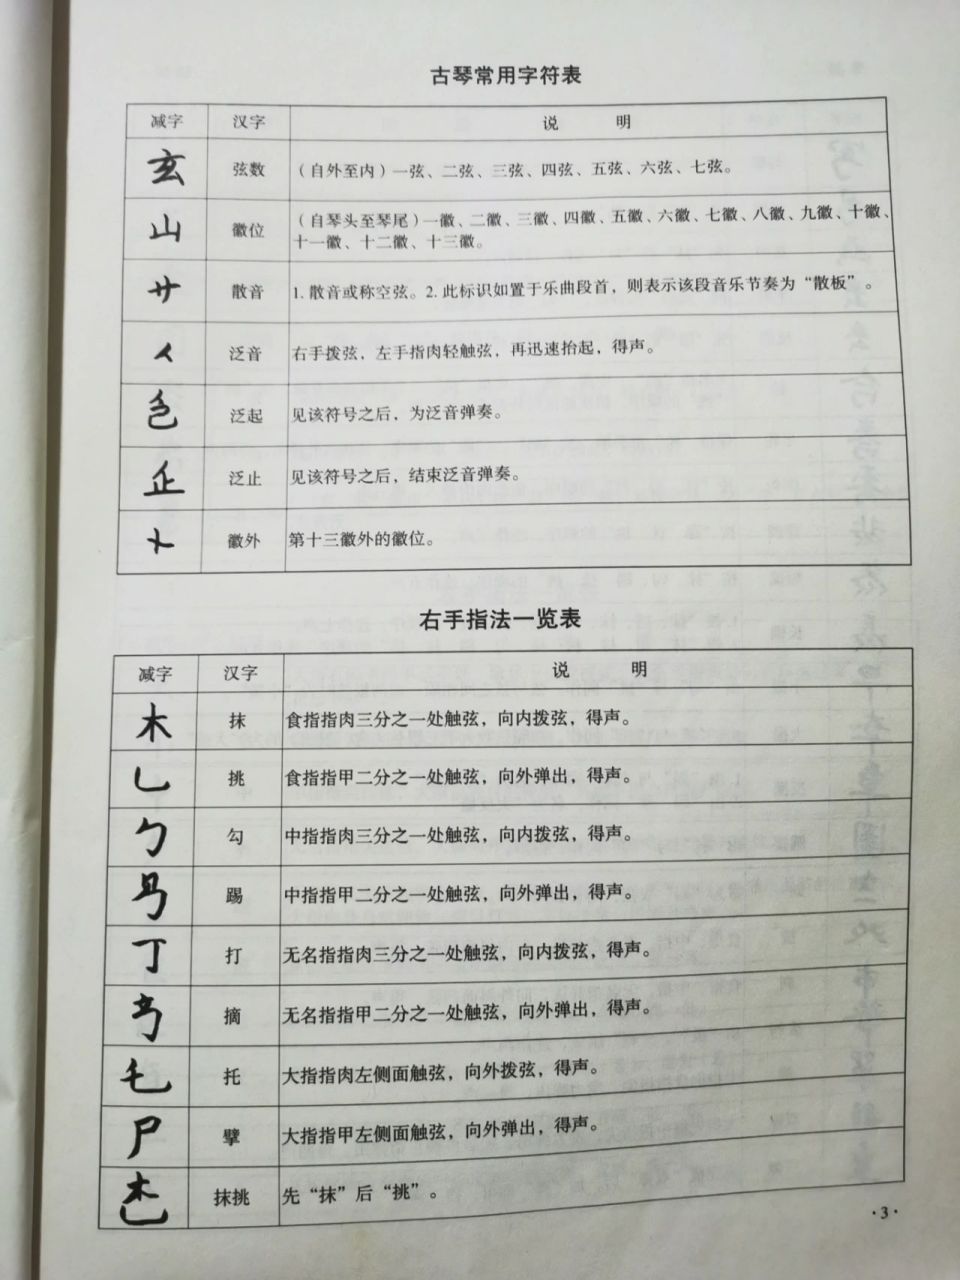 古琴常用字符表
减字 汉字 说 明
玄 弦数 （自外至内）一弦、二弦、三弦、四弦、五弦、六弦、七弦。
山 徽位 （自琴头至琴尾）一徽、二徽、三徽、四徽、五徽、六徽、七徽、八徽、九徽、十徽、
十一徽、十二徽、十三徽。
散音 1. 散音或称空弦。2. 此标识如置于乐曲段首，则表示该段音乐节奏为“散板”。
泛音 右手拨弦，左手指肉轻触弦，再迅速抬起，得声。
泛起 见该符号之后，为泛音弹奏。
泛止 见该符号之后，结束泛音弹奏。
卜 徽外 第十三徽外的徽位。
右手指法一览表
减字 汉字 说 明
木 抹 食指指肉三分之一处触弦，向内拨弦，得声。
乚 挑 食指指甲二分之一处触弦，向外弹出，得声。
勹 勾 中指指肉三分之一处触弦，向内拨弦，得声。
踢 中指指甲二分之一处触弦，向外弹出，得声。
丁 打 无名指指肉三分之一处触弦，向内拨弦，得声。
摘 无名指指甲二分之一处触弦，向外弹出，得声。
乇 托 大指指肉左侧面触弦，向外拨弦，得声。
尸 擘 大指指甲左侧面触弦，向外弹出，得声。
抹挑 先“抹”后“挑”。
·3·